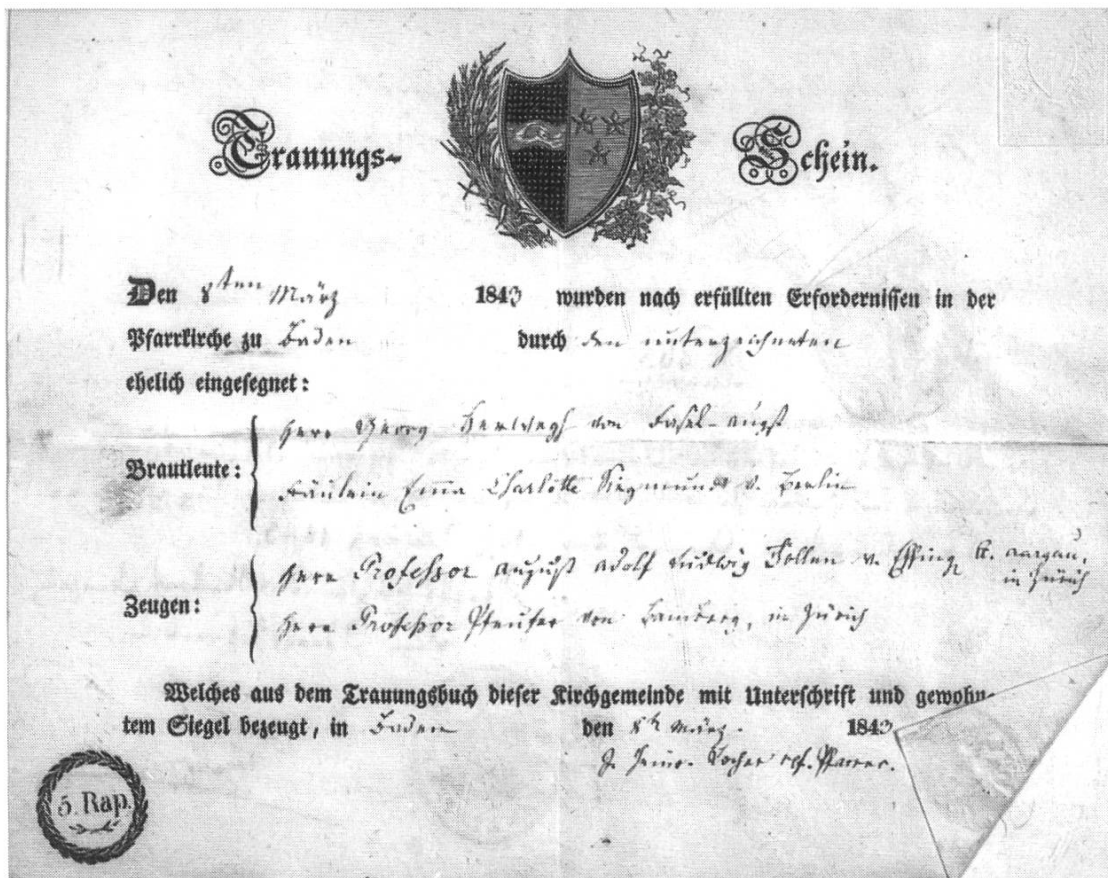 Trauungs- Schein.
Den 8ten März 1843 wurden nach erfüllten Erfordernissen in der
Pfarrkirche zu Baden durch den unterzeichneten
ehelich eingesegnet:
Herr Georg Herwegh von Basel-Augst
Brautleute:
Fräulein Emma Charlotte Siegmund v. Berlin
Herr Professor August Adolf Ludwig Follen v. Effing. K. Aargau,
in Zürich
Zeugen:
Herr Professor Pfeufer von Bamberg, in Zürich
Welches aus dem Trauungsbuch dieser Kirchgemeinde mit Unterschrift und gewohn-
tem Siegel bezeugt, in Baden den 8t März. 1843
J. Heinr. Locher ref. Pfarrer.
5. Rap.